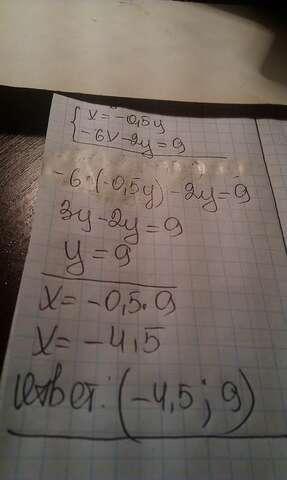 { x = -0,5y
-6x - 2y = 9
-6·(-0,5y) - 2y = 9
3y - 2y = 9
y = 9
x = -0,5·9
x = -4,5
Ответ: (-4,5; 9)